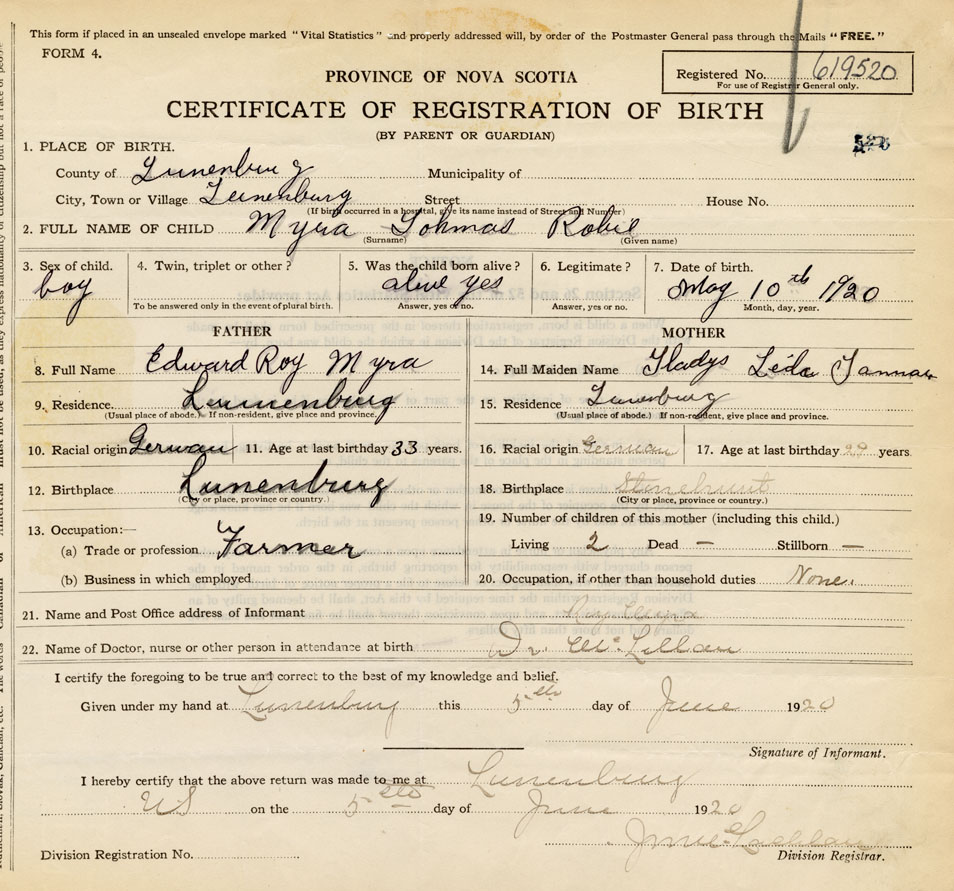 This form if placed in an unsealed envelope marked "Vital Statistics" and properly addressed will, by order of the Postmaster General pass through the Mails "FREE."
FORM 4.
PROVINCE OF NOVA SCOTIA
Registered No. 619520
For use of Registrar General only.
CERTIFICATE OF REGISTRATION OF BIRTH
(BY PARENT OR GUARDIAN)
1. PLACE OF BIRTH.
County of Lunenburg Municipality of
City, Town or Village Lunenburg Street House No.
(If birth occurred in a hospital, give its name instead of Street and Number)
2. FULL NAME OF CHILD Myra Tohmas Robie
(Surname) (Given name)
3. Sex of child. 4. Twin, triplet or other? 5. Was the child born alive? 6. Legitimate? 7. Date of birth.
boy alive yes May 10th 1920
To be answered only in the event of plural birth. Answer, yes or no. Answer, yes or no. Month, day, year.
FATHER MOTHER
8. Full Name Edward Roy Myra 14. Full Maiden Name Gladys Leda
9. Residence Lunenburg 15. Residence Lunenburg
(Usual place of abode.) If non-resident, give place and province. (Usual place of abode.) If non-resident, give place and province.
10. Racial origin German 11. Age at last birthday 33 years. 16. Racial origin German 17. Age at last birthday years.
12. Birthplace Lunenburg 18. Birthplace
(City or place, province or country.) (City or place, province or country.)
13. Occupation:— 19. Number of children of this mother (including this child.)
(a) Trade or profession Farmer Living 2 Dead — Stillborn —
(b) Business in which employed 20. Occupation, if other than household duties None.
21. Name and Post Office address of Informant
22. Name of Doctor, nurse or other person in attendance at birth Dr.
I certify the foregoing to be true and correct to the best of my knowledge and belief.
Given under my hand at Lunenburg this 5th day of June 1920
Signature of Informant.
I hereby certify that the above return was made to me at Lunenburg
on the 5th day of June 1920
Division Registration No. Division Registrar.